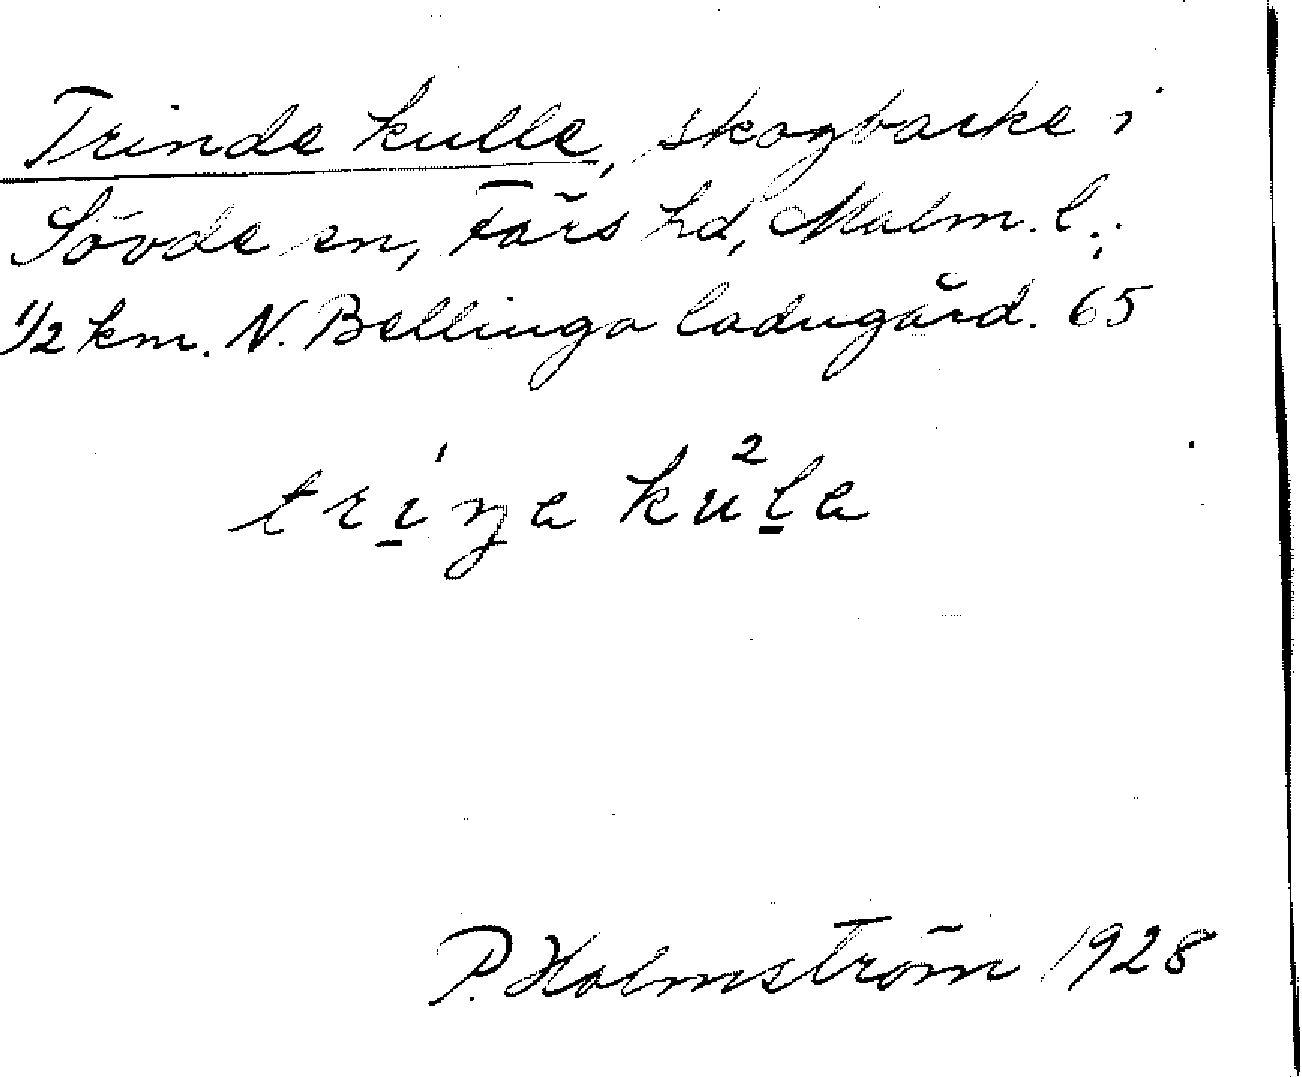 Trinde kulle, skogbacke i
Sövde sn, Färs hd, Malm. l.;
1/2 km. N. Bellinga ladugård. 65
kula
P. Holmström 1928